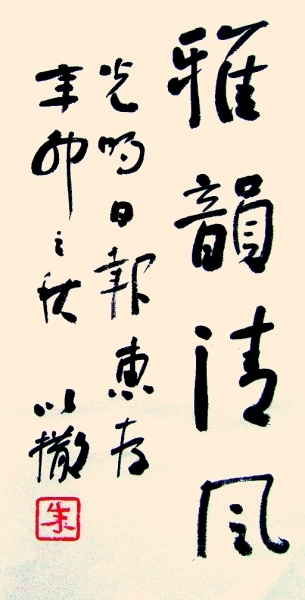 雅韻清风
光明日報惠存
辛卯之秋 以撒
朱